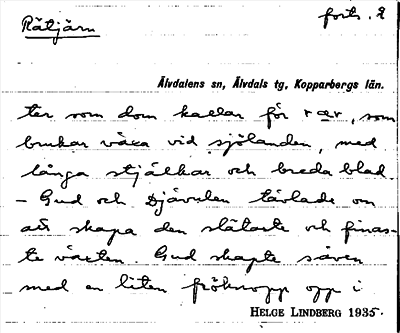 Rätjärn
forts. 2
Älvdalens sn, Älvdals tg, Kopparbergs län.
ter som dom kallar för rær, som
brukar växa vid sjölanden, med
långa stjälkar och breda blad.
– Gud och Djävulen tävlade om
att skapa den slätaste och finas-
te växten. Gud skapte säven
med en liten fröknopp opp i
HELGE LINDBERG 1935.